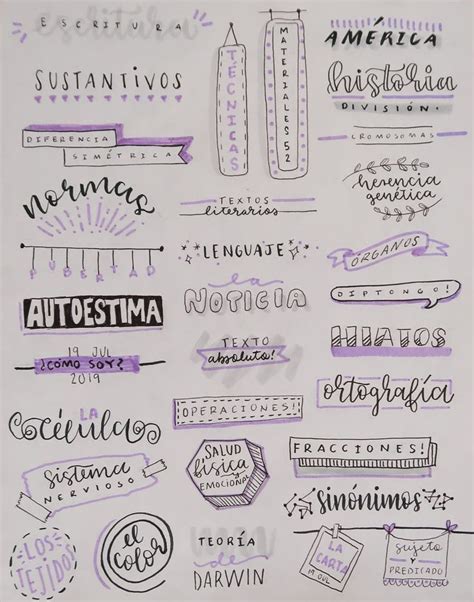 escritura
ESCRITURA
SUSTANTIVOS
DIFERENCIA
SIMÉTRICA
normas
PUBERTAD
AUTOESTIMA
19 JUL
¿CÓMO SOY?
2019
LA
célula
sistema
NERVIOSO
LOS
TEJIDOS
el
color
TÉCNICAS
MATERIALES 52
TEXTOS
literarios
LENGUAJE
la
NOTICIA
TEXTO
absoluto!
OPERACIONES!
SALUD
física
Y
EMOCIONAL
TEORÍA
de
DARWIN
AMÉRICA
historia
DIVISIÓN
CROMOSOMAS
herencia
genética
ÓRGANOS
DIPTONGO!
HIATOS
ortografía
FRACCIONES!
sinónimos
LA
CARTA
19 JUL
sujeto
Y
PREDICADO